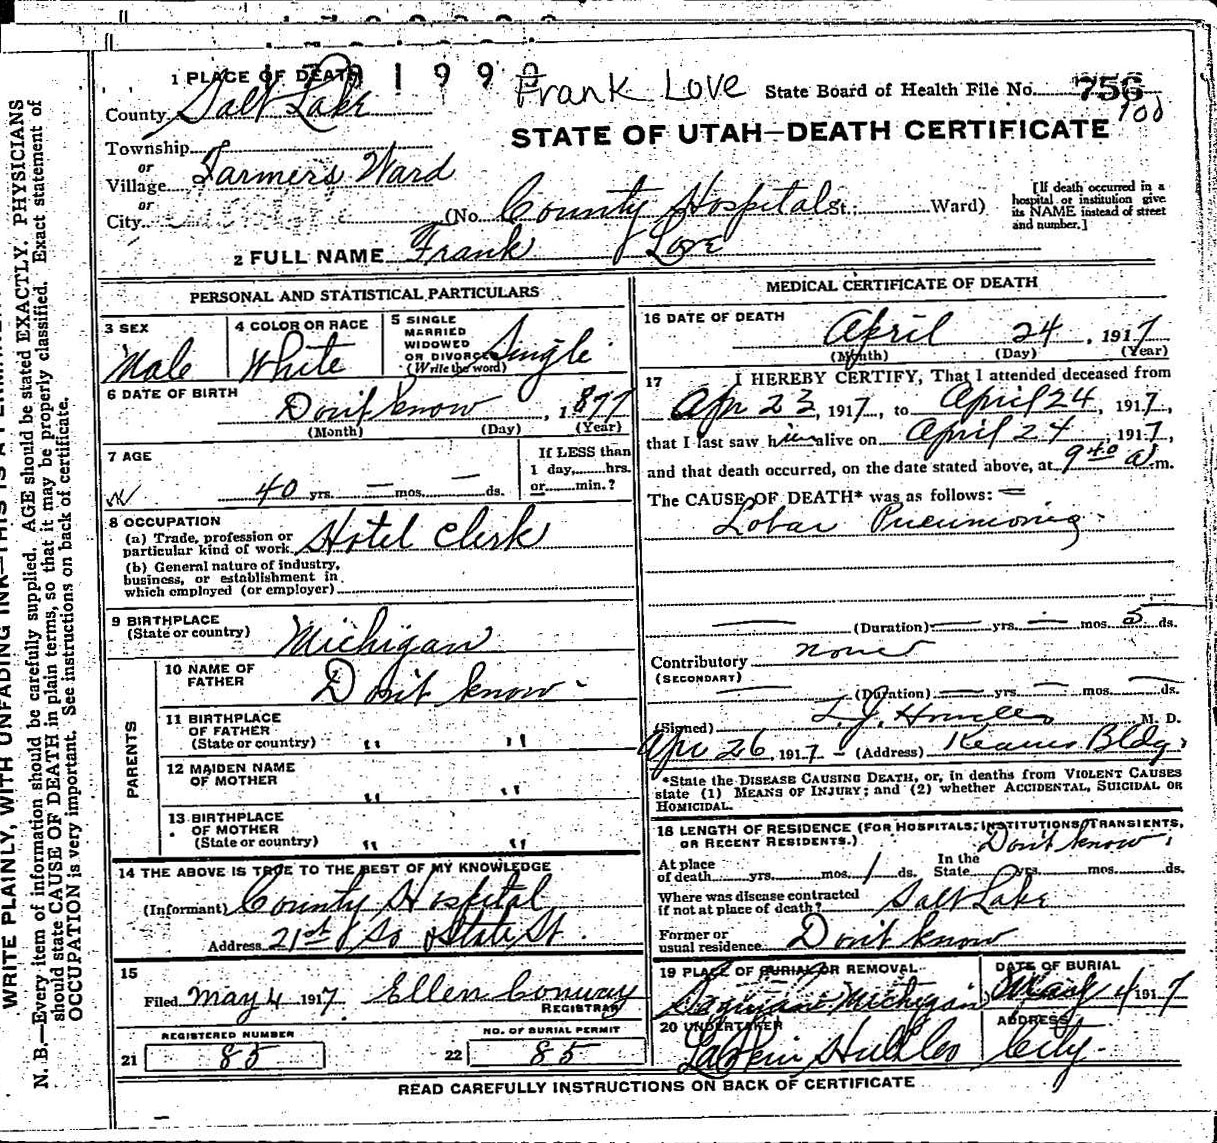 1 PLACE OF DEATH 1 9 9 0
Frank Love State Board of Health File No. 756
100
County Salt Lake
STATE OF UTAH—DEATH CERTIFICATE
Township
or
Village Farmers Ward
or
City (No. County Hospital St.; Ward)
[If death occurred in a hospital or institution give its NAME instead of street and number.]
2 FULL NAME Frank Love
PERSONAL AND STATISTICAL PARTICULARS
3 SEX
Male
4 COLOR OR RACE
White
5 SINGLE
MARRIED
WIDOWED
OR DIVORCED
(Write the word)
Single
6 DATE OF BIRTH
Don't know, 1877
(Month) (Day) (Year)
7 AGE
40 yrs. — mos. — ds.
If LESS than
1 day, hrs.
or min.?
8 OCCUPATION
(a) Trade, profession or
particular kind of work Hotel Clerk
(b) General nature of industry,
business, or establishment in
which employed (or employer)
9 BIRTHPLACE
(State or country) Michigan
PARENTS
10 NAME OF
FATHER Don't know
11 BIRTHPLACE
OF FATHER
(State or country) " "
12 MAIDEN NAME
OF MOTHER " "
13 BIRTHPLACE
OF MOTHER
(State or country) " "
14 THE ABOVE IS TRUE TO THE BEST OF MY KNOWLEDGE
(Informant) County Hospital
Address 21st So State St.
15
Filed May 4 1917 Ellen Conway
REGISTRAR
REGISTERED NUMBER
21 85
NO. OF BURIAL PERMIT
22 85
MEDICAL CERTIFICATE OF DEATH
16 DATE OF DEATH
April 24, 1917
(Month) (Day) (Year)
17 I HEREBY CERTIFY, That I attended deceased from
Apr 23, 1917, to April 24, 1917,
that I last saw him alive on April 24, 1917,
and that death occurred, on the date stated above, at 9 40 a m.
The CAUSE OF DEATH* was as follows: —
Lobar Pneumonia
— (Duration) — yrs. — mos. 5 ds.
Contributory none
(SECONDARY)
— (Duration) — yrs. — mos. — ds.
(Signed) M. D.
Apr 26, 1917 – (Address) Kearns Bldg.
*State the DISEASE CAUSING DEATH, or, in deaths from VIOLENT CAUSES
state (1) MEANS OF INJURY; and (2) whether ACCIDENTAL, SUICIDAL OR
HOMICIDAL.
18 LENGTH OF RESIDENCE (FOR HOSPITALS, INSTITUTIONS, TRANSIENTS,
OR RECENT RESIDENTS.)
Don't know
At place
of death yrs. mos. 1 ds.
In the
State yrs. mos. ds.
Where was disease contracted
if not at place of death? Salt Lake
Former or
usual residence Don't know
19 PLACE OF BURIAL OR REMOVAL
Saginaw Michigan
DATE OF BURIAL
May 4 1917
20 UNDERTAKER
ADDRESS
City.
READ CAREFULLY INSTRUCTIONS ON BACK OF CERTIFICATE
N. B.—Every item of information should be carefully supplied. AGE should be stated EXACTLY. PHYSICIANS
should state CAUSE OF DEATH in plain terms, so that it may be properly classified. Exact statement of
OCCUPATION is very important. See instructions on back of certificate.
WRITE PLAINLY, WITH UNFADING INK—THIS IS A